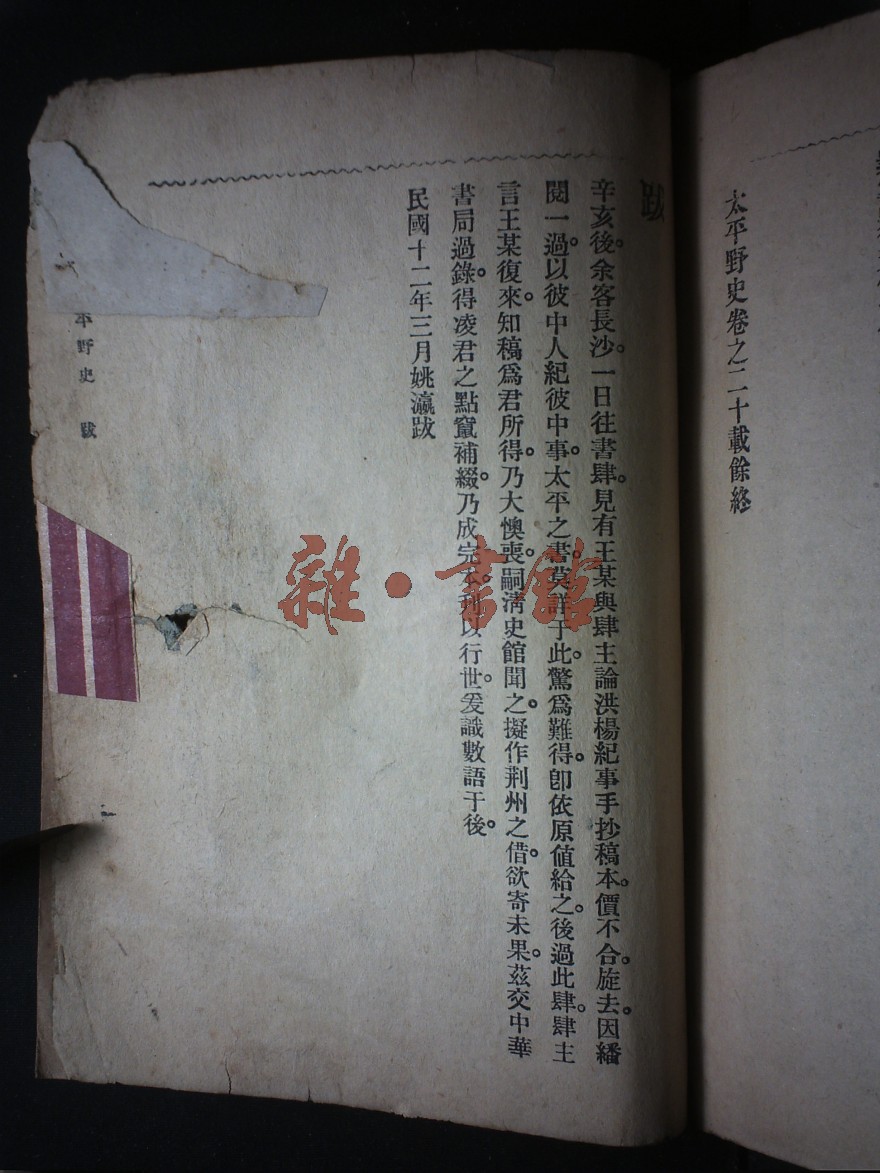 太平野史卷之二十載餘終
跋
辛亥後。余客長沙。一日往書肆。見有王某與肆主論洪楊紀事手抄稿本。價不合。旋去。因繙
閱一過。以彼中人紀彼中事。太平之書。莫詳于此。驚爲難得。卽依原値給之。後過此肆。肆主
言王某復來。知稿爲君所得。乃大懊喪。嗣淸史館聞之。擬作荆州之借。欲寄未果。茲交中華
書局過錄。得凌君之點竄補綴。乃成完本。刊以行世。爰識數語于後。
民國十二年三月姚瀛跋
平野史 跋
雜·書館